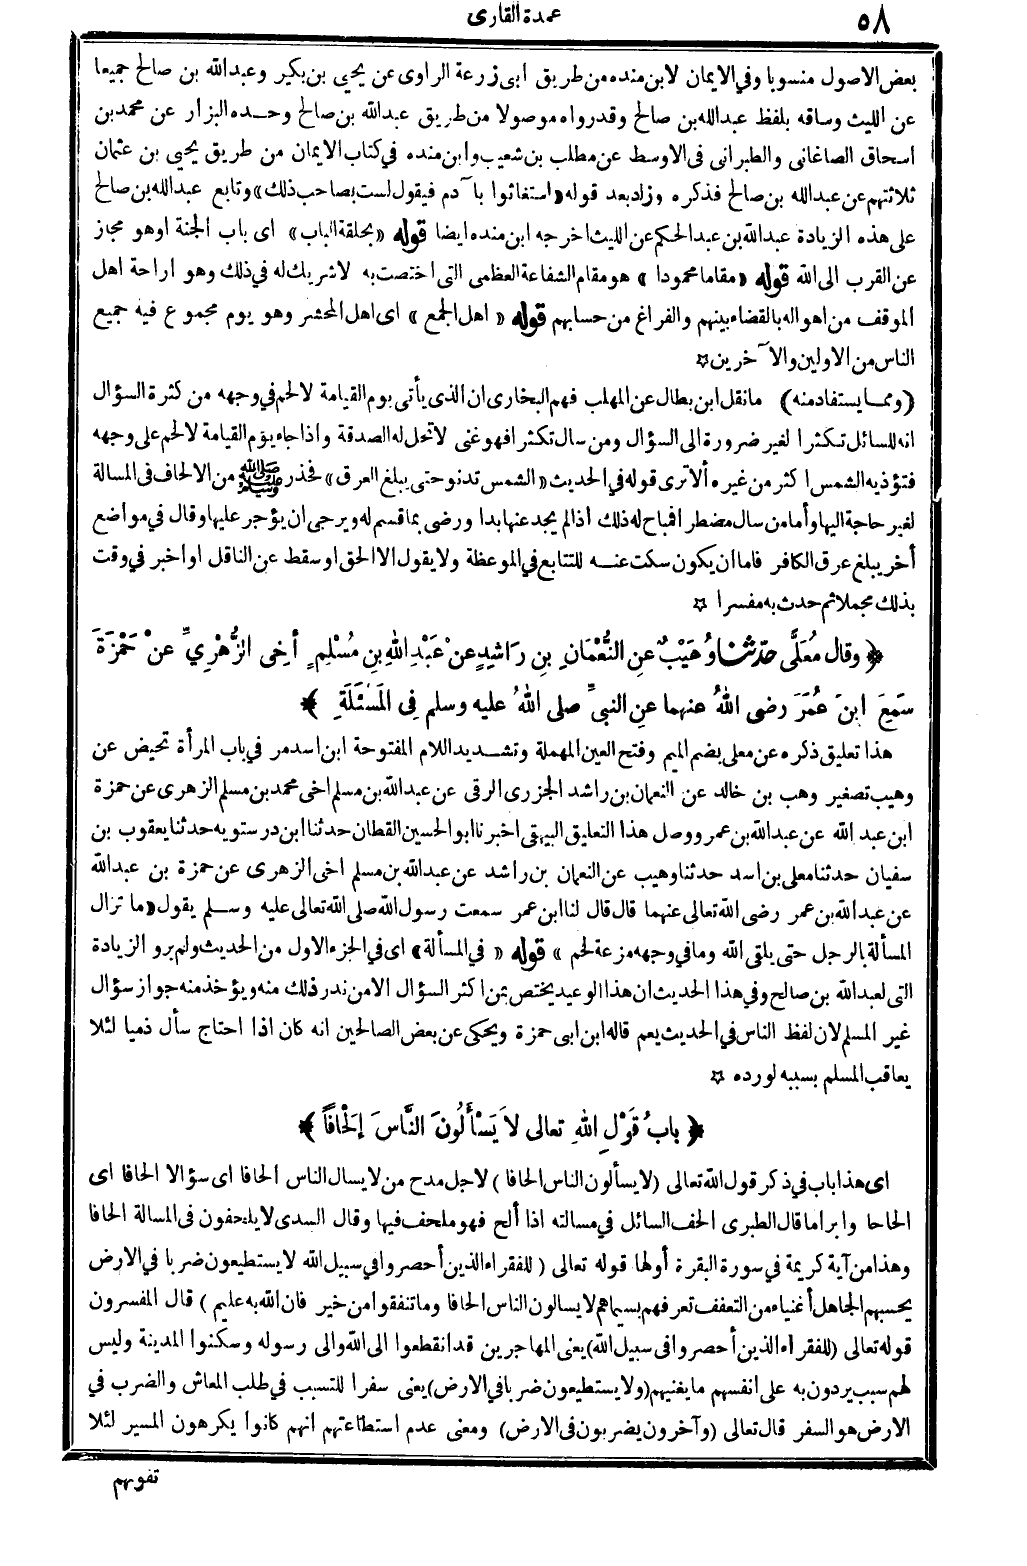 ٥٨
عمدة القارى
بعض الاصول منسوبا وفي الايمان لابن منده من طريق ابى زرعة الراوى عن يحيى بن بكير وعبدالله بن صالح جميعا
عن الليث وساقه بلفظ عبدالله بن صالح وقدرواه موصولا من طريق عبدالله بن صالح وحــده البزار عن محمد بن
اسحاق الصاغانى والطبرانى فى الاوسط عن مطلب بن شعيب وابن منده في كتاب الايمان من طريق يحيى بن عثمان
ثلاثتهم عن عبدالله بن صالح فذكره وزاد بعد قوله «استغاثوا بآدم فيقول لست بصاحب ذلك» وتابع عبدالله بن صالح
على هذه الزيادة عبدالله بن عبدالحكم عن الليث اخرجه ابن منده ايضا قوله «بحلقة الباب» اى باب الجنة اوهو مجاز
عن القرب الى الله قوله «مقاما محمودا» هو مقام الشفاعة العظمى التى اختصت به لاشريك له في ذلك وهو اراحة اهل
الموقف من اهواله بالقضاء بينهم والفراغ من حسابهم قوله «اهل الجمع» اى اهل المحشر وهو يوم مجموع فيه جميع
الناس من الاولين والآخرين ☆
(ومما يستفاد منه) مانقل ابن بطال عن المهلب فهم البخارى ان الذى يأتى يوم القيامة لالحم في وجهه من كثرة السؤال
انه للسائل تكثرا لغير ضرورة الى السؤال ومن سال تكثرا فهو غنى لا تحل له الصدقة واذا جاء يوم القيامة لالحم على وجهه
فتؤذيه الشمس اكثر من غيره ألا ترى قوله في الحديث «الشمس تدنو حتى يبلغ العرق» فحذر ﷺ من الالحاف فى المسالة
لغير حاجة اليها وأما من سال مضطر افباح له ذلك اذالم يجد عنها بدا ورضى بما قسم له ويرجى ان يؤجر عليها وقال في مواضع
أخر يبلغ عرق الكافر فاما أن يكون سكت عنـــه للتتابع في الموعظة ولا يقول الا الحق او سقط عن الناقل او أخبر في وقت
بذلك مجملا ثم حدث به مفسرا ☆
﴿ وقال مُعَلًّى حدّثنا وُهَيْبٌ عنِ النُّعْمَانِ بنِ رَاشِدٍ عنْ عَبْدِ اللهِ بنِ مُسْلِمٍ أخِى الزُّهْرِيِّ عنْ حَمْزَةَ
سَمِعَ ابنَ عُمَرَ رضى اللهُ عنهما عنِ النبيِّ صلى اللهُ عليه وسلم فِى المَسْئَلَةِ ﴾
هذا تعليق ذكره عن معلى بضم الميم وفتح العين المهملة وتشـديد اللام المفتوحة ابن اسد مر في باب المرأة تحيض عن
وهيب تصغير وهب بن خالد عن النعمان بن راشد الجزرى الرقى عن عبدالله بن مسلم اخى محمد بن مسلم الزهرى عن حمزة
ابن عبد الله عن عبدالله بن عمر ووصل هذا التعليق البيهقى اخبرنا ابو الحسين القطان حدثنا ابن درستويه حدثنا يعقوب بن
سفيان حدثنا معلى بن اسد حدثنا وهيب عن النعمان بن راشد عن عبدالله بن مسلم اخى الزهرى عن حمزة بن عبدالله
عن عبدالله بن عمر رضى الله تعالى عنهما قال قال لنا ابن عمر سمعت رسول الله صلى الله تعالى عليه وســلم يقول «ما تزال
المسألة بالرجل حتى يلقى الله وما في وجهه مزعة لحم» قوله «في المسألة» اى في الجزء الاول من الحديث ولم يرو الزيادة
التى لعبدالله بن صالح وفي هذا الحديث ان هذا الوعيد يختص بمن اكثر السؤال الا من ندر ذلك منه ويؤخذ منه جواز سؤال
غير المسلم لان لفظ الناس في الحديث يعم قاله ابن ابى حمزة ويحكى عن بعض الصالحين انه كان اذا احتاج سأل ذميا لئلا
يعاقب المسلم بسببه لورده ☆
﴿ بابُ قَوْلِ اللهِ تعالى لاَ يَسْأَلُونَ النَّاسَ إلحَافًا ﴾
اى هذا باب في ذكر قول الله تعالى (لا يسألون الناس الحافا) لاجل مدح من لا يسال الناس الحافا اى سؤالا الحافا اى
الحاحا وابراما قال الطبرى الحف السائل في مسالته اذا ألح فهو ملحف فيها وقال السدى لا يلحفون فى المسالة الحافا
وهذا من آية كريمة في سورة البقرة أولها قوله تعالى (للفقراء الذين أحصروا في سبيل الله لا يستطيعون ضربا في الارض
يحسبهم الجاهل أغنياء من التعفف تعرفهم بسيماهم لا يسالون الناس الحافا وما تنفقوا من خير فان الله به عليم) قال المفسرون
قوله تعالى (للفقراء الذين أحصروا فى سبيل الله) يعنى المهاجرين قد انقطعوا الى الله والى رسوله وسكنوا المدينة وليس
لهم سبب يردون به على انفسهم ما يغنيهم (ولا يستطيعون ضربا في الارض) يعنى سفرا للتسبب في طلب المعاش والضرب في
الارض هو السفر قال تعالى (وآخرون يضربون فى الارض) ومعنى عدم استطاعتهم انهم كانوا يكرهون المسير لئلا
تفوتهم